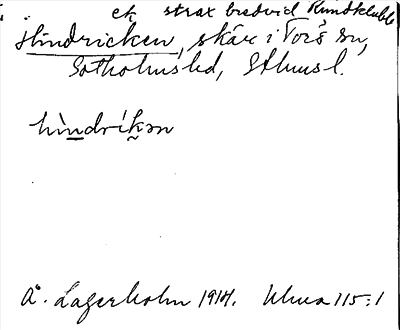 ett strax bredvid Rundklubb
Hindricken, skär i Torö sn,
Sotholms hd, Sthms l.
hìndríkən
Å. Lagerholm 1914. Uhma 115:1